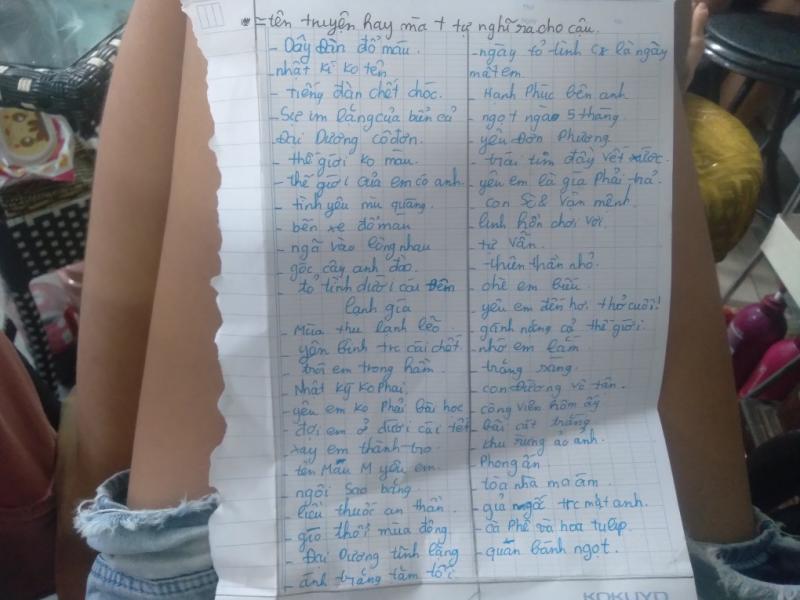 = tên truyện hay mà t tự nghĩ ra cho cậu.
- Dây Đàn đổ máu.
- nhật kí ko tên
- tiếng đàn chết chóc.
- Sự im lặng của biển cả
- Đại Dương cô đơn.
- thế giới ko màu.
- thế giới của em có anh.
- tình yêu mù quáng.
- bến xe đổ máu
- ngã vào lòng nhau
- gốc cây anh đào
- tỏ tình dưới cái đêm
lạnh giá
- Mùa thu lạnh lẽo
- yên bình trc cái chết.
- em trong hầm
- Nhật ký ko phai
- yêu em ko phải bài học
- đợi em ở dưới cái tết
- em thành tro
- tên Mẫu M yêu em
- ngôi sao băng
- liều thuốc an thần
- gió thổi mùa đông
- Đại Dương tĩnh lặng
- ánh trăng tăm tối
- ngày tỏ tình là ngày
mất em
- Hạnh Phúc bên anh
- ngọt ngào 5 tháng
- yêu Đơn Phương
- trái tim đầy vết xước.
- yêu em là giá phải trả.
- con số 8 vận mệnh.
- linh hồn chơi vơi
- tư vấn.
- thiên thần nhỏ.
- em
- yêu em đến hơi thở cuối!
- gánh nặng cả thế giới
- nhớ em lắm
- trăng sáng.
- con Đường về tân.
- công viên hôm ấy
- bãi cát trắng
- khu rừng ảo ảnh.
- Phong ấn
- tòa nhà ma ám.
- giả ngốc trc mặt anh.
- cà phê và hoa tulip.
- quán bánh ngọt.
KOKUYO